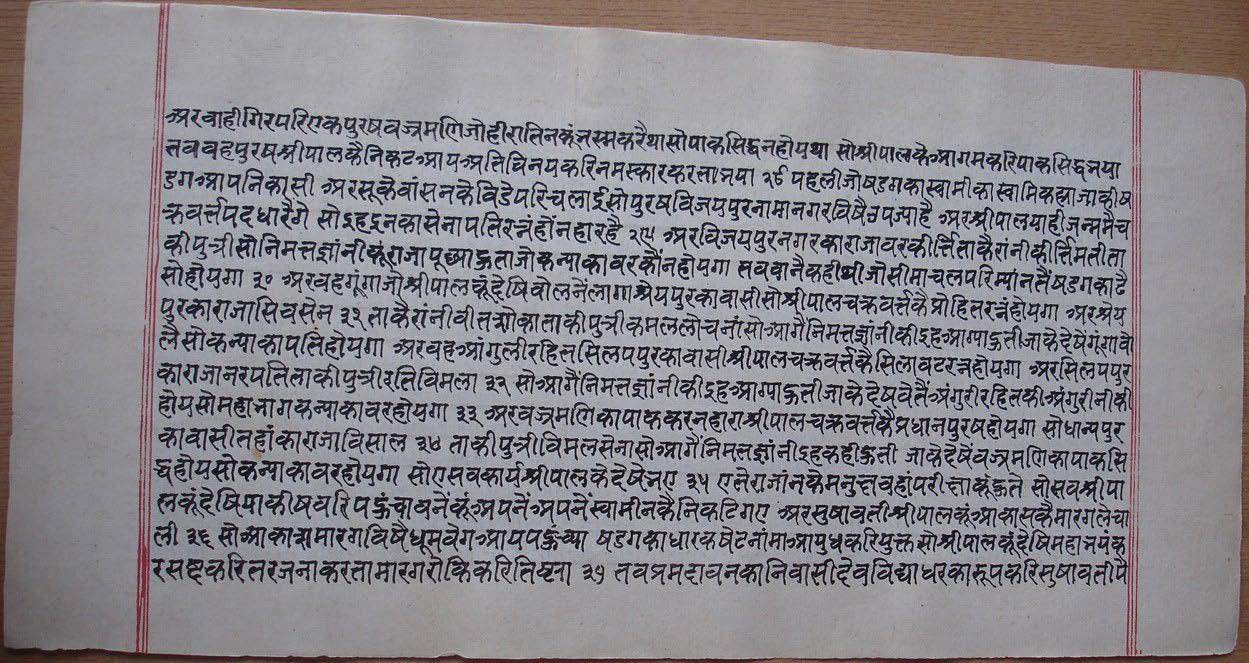 अर वाही गिर परि एक पुरष वज्रमणि जो हीरा तिनकूं भस्म करै था सो पाक सिद्ध न होय था सो श्रीपालकै आगम करि पाक सिद्ध भया
तव वह पुरष श्रीपालकै निकट आय अति विनय करि नमस्कार करता भया २९ पहली जो षडगका स्वामी का स्वामि कह्या जाकी ष
डग आपनिकासी अर सूकेवांसनकेविडेपरि चलाई सो पुरष विजयपुरनामा नगरविषै उपज्या है अर श्रीपाल याही जन्ममै च
क्रवर्त्तपद धारैगे सो इह इनका सेनापति रत्नं होंनहार है २१५ अर विजयपुर नगरका राजा वरकीर्त्ति ताकै रांनी कीर्त्तिमती ता
की पुत्री सो निमत्तज्ञांनीकूं राजा पूछ्या हुता जो कन्याका वर कौंन होयगा तव वानै कही थी जो सीमाचल परि म्यांनतैं षडग काढै
सो होयगा ३० अर वह गूंगा जो श्रीपालकूं देषि वोलनें लागा श्रेयपुरका वासी सो श्रीपाल चक्रवर्त्तकै प्रोहित रत्नं होयगा अर श्रेय
पुरका राजा सिवसेन ३१ ताकै रांनी वीतशोका ताकी पुत्री कमललोचनां सो आगै निमत्तज्ञांनीकी इह आग्या हुती जाके देषें गूंगा वो
लै सो कन्याका पति होयगा अर वह आंगुली रहित सिलपपुरका वासी श्रीपाल चक्रवर्त्तकै सिलावट रत्न होयगा अर सिलपपुर
का राजा नरपति ताकी पुत्री रतिविमला ३२ सो आगैं निमत्तज्ञांनीकी इह आग्या हुती जाके देषवेतैं अंगुरी रहितकी अंगुरी नीकी
होय सो महाभाग कन्याका वर होयगा ३३ अर वज्रमणिका पाक करनहारा श्रीपाल चक्रवर्त्तकै प्रधान पुरष होयगा सो धान्यपुर
का वासी तहांका राजा विसाल ३४ ताकी पुत्री विमलसेना सो आगैं निमत्तज्ञांनी इह कही हुती जाके देषें वज्रमणिका पाक सि
द्ध होय सो कन्याका वर होयगा सो ए सव कार्य श्रीपालके देषे भए ३५ एते राजांनके मनुष्य वहां परीक्षाकूं हुते सो सव श्रीपा
लकूं देषि पाकी षवरि पहुंचायनेंकूं अपनें अपनें स्वामीनकै निकटि गए अर सुषावती श्रीपालकूं आकासकै मारग ले चा
ली ३६ सो आकाशमारगविषै धूमवेग आय पहुंच्या षडगका धारक षेटनांमा आयुध करि युक्त सो श्रीपालकूं देषि महा भयंक
र सष्ट करि तरजना करता मारग रोकि करि तिष्ठ्या ३७ तव प्रमदावनका निवासी देव विद्याधरका रूप करि सुषावतीपै